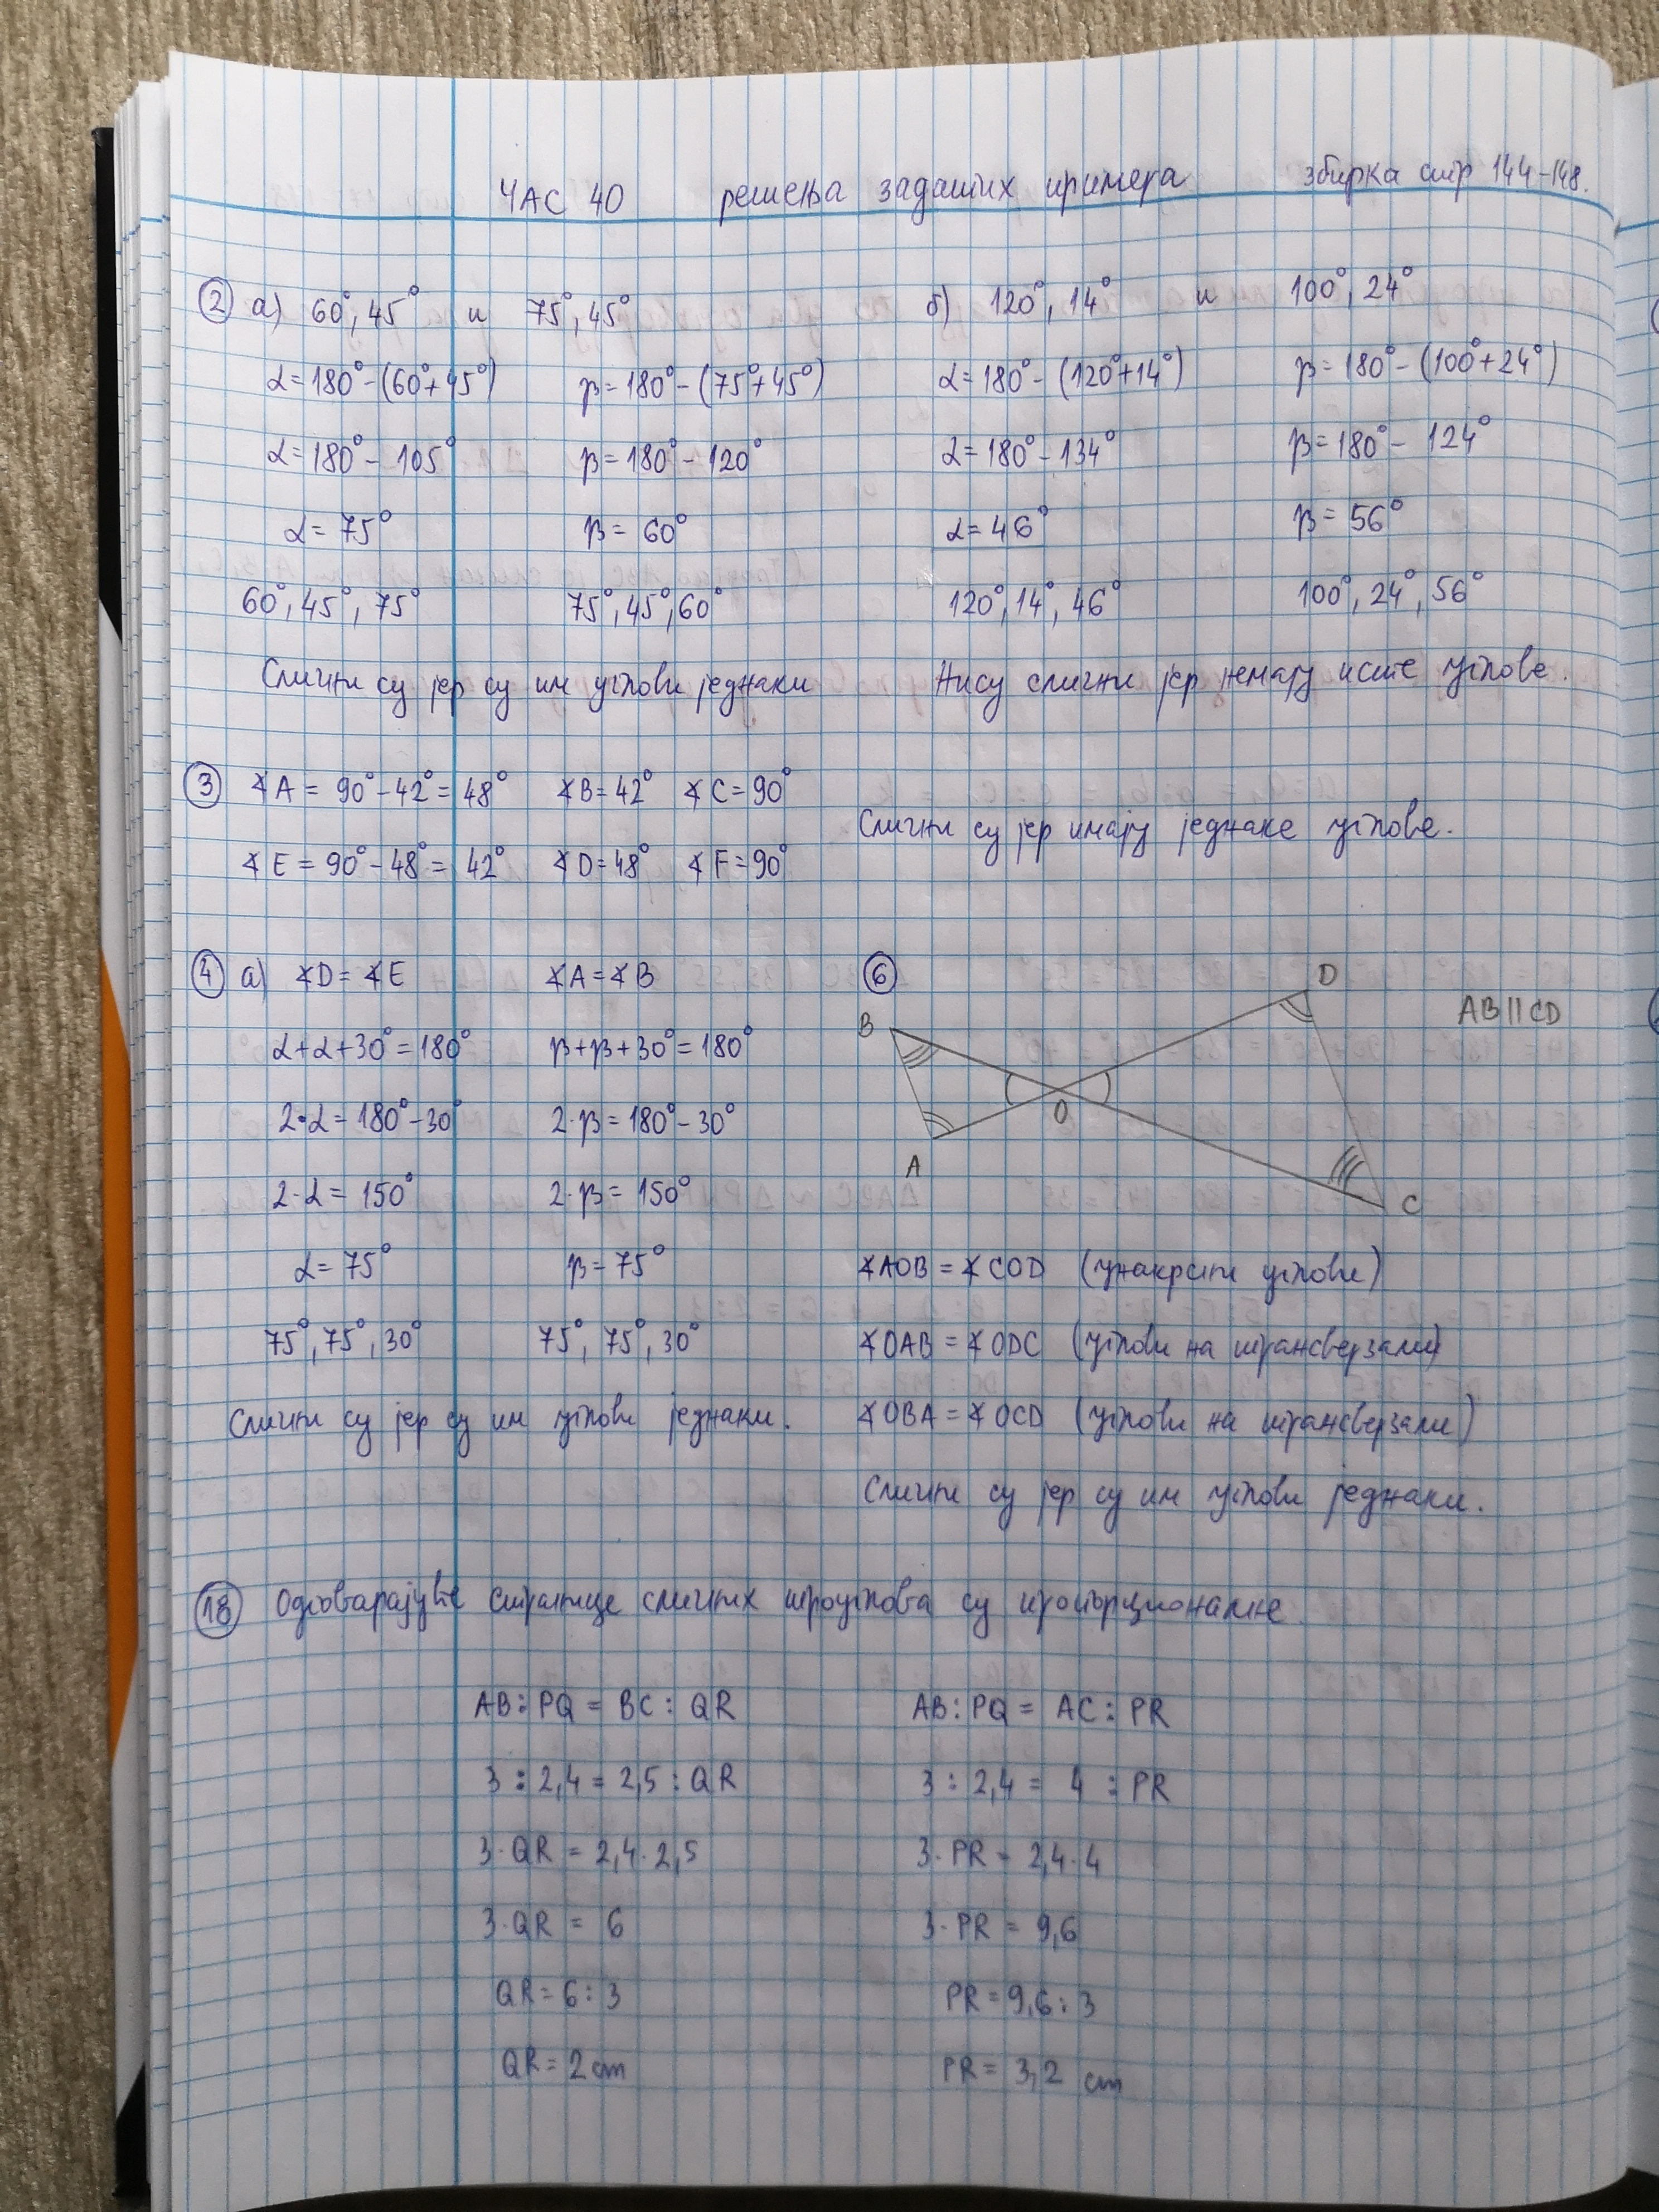 ЧАС 40 решења задатих примера збирка стр 144-148.
② а) 60°, 45° и 75°, 45°
α=180°-(60°+45°) β=180°-(75°+45°)
α=180°-105° β=180°-120°
α=75° β=60°
60°, 45°, 75° 75°, 45°, 60°
Слични су јер су им углови једнаки
б) 120°, 14° и 100°, 24°
α=180°-(120°+14°) β=180°-(100°+24°)
α=180°-134° β=180°-124°
α=46° β=56°
120°, 14°, 46° 100°, 24°, 56°
Нису слични јер немају исте углове.
③ ∢A = 90°-42° = 48° ∢B=42° ∢C=90°
∢E = 90°-48° = 42° ∢D=48° ∢F=90°
Слични су јер имају једнаке углове.
④ а) ∢D=∢E ∢A=∢B
α+α+30°=180° β+β+30°=180°
2·α=180°-30° 2·β=180°-30°
2·α=150° 2·β=150°
α=75° β=75°
75°, 75°, 30° 75°, 75°, 30°
Слични су јер су им углови једнаки.
⑥
D
B
AB||CD
O
A
C
∢AOB=∢COD (унакрсни углови)
∢OAB=∢ODC (углови на трансверзали)
∢OBA=∢OCD (углови на трансверзали)
Слични су јер су им углови једнаки.
⑱ Одговарајуће странице сличних троуглова су пропорционалне.
AB:PQ = BC:QR AB:PQ = AC:PR
3:2,4 = 2,5:QR 3:2,4 = 4:PR
3·QR = 2,4·2,5 3·PR = 2,4·4
3·QR = 6 3·PR = 9,6
QR=6:3 PR=9,6:3
QR=2 cm PR=3,2 cm